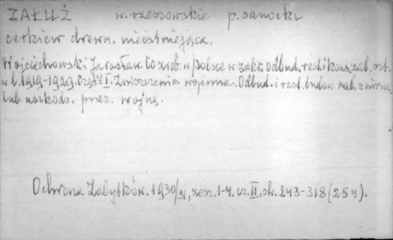 ZAŁUŻ w. rzeszowskie p. sanocki
cerkiew drewn. nieistniejąca.
Wojciechowski Jarosław. Co zrob. w Polsce w zakr. odbud. rest. i kons. zab. ost.
w l. 1919-1929. Część I. Zniszczenia wojenne. Odbud. i rest. budow. zab. zniszcz.
lub uszkodz. przez wojnę.
Ochrona Zabytków. 1930/31, zesz. 1-4. cz. II, str. 243-318 (254).